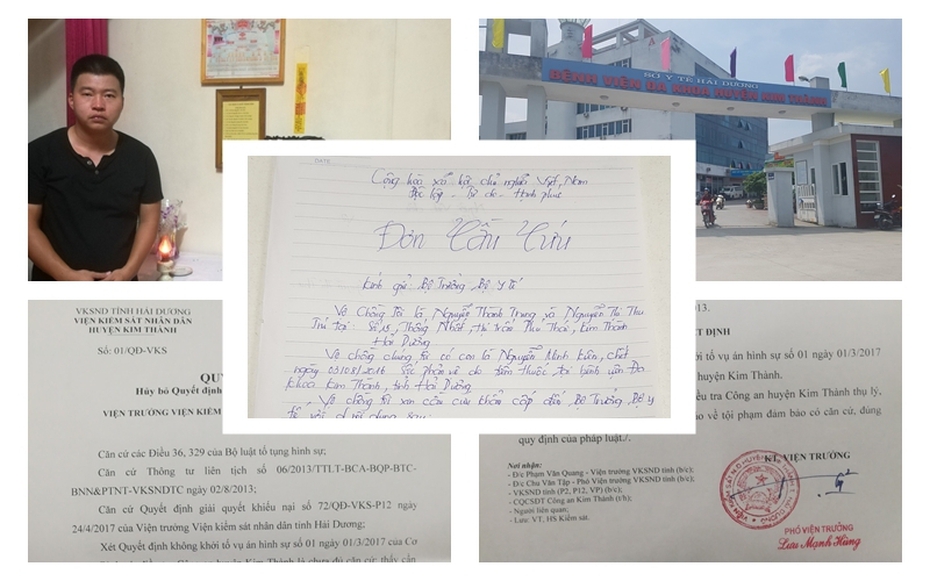 SỞ Y TẾ HẢI DƯƠNG
BỆNH VIỆN ĐA KHOA HUYỆN KIM THÀNH
DATE
Cộng hòa xã hội chủ nghĩa Việt Nam
Độc lập - Tự do - Hạnh phúc
Đơn Cầu Cứu
Kính gửi: Bộ Trưởng, Bộ y tế
Vợ Chồng Tôi là, Nguyễn Thành Trung và Nguyễn Thị Thu
Trú tại: Số, Thống Nhất, thị trấn Phú Thái, Kim Thành
Hải Dương
Vợ chồng chúng tôi có con là Nguyễn Minh Kiên, chết
ngày 03/08/2016 Sốc phản vệ do tiêm thuốc, tại bệnh viện Đa
khoa Kim Thành, tỉnh Hải Dương
Vợ chồng tôi xin cầu cứu khẩn cấp đến, Bộ Trưởng, Bộ y
tế với nội dung sau:
VKSND TỈNH HẢI DƯƠNG
VIỆN KIỂM SÁT NHÂN DÂN
HUYỆN KIM THÀNH
Số: 01/QĐ-VKS
QUY
Hủy bỏ Quyết định
VIỆN TRƯỞNG VIỆN KIỂM
Căn cứ các Điều 36, 329 của Bộ luật tố tụng hình sự;
Căn cứ Thông tư liên tịch số 06/2013/TTLT-BCA-BQP-BTC-
BNN&PTNT-VKSNDTC ngày 02/8/2013;
Căn cứ Quyết định giải quyết khiếu nại số 72/QĐ-VKS-P12 ngày
24/4/2017 của Viện trưởng Viện kiểm sát nhân dân tỉnh Hải Dương;
Xét Quyết định không khởi tố vụ án hình sự số 01 ngày 01/3/2017 của Cơ
013.
ẾT ĐỊNH
ởi tố vụ án hình sự số 01 ngày 01/3/2017
huyện Kim Thành.
ều tra Công an huyện Kim Thành thụ lý,
áo về tội phạm đảm bảo có căn cứ, đúng
quy định của pháp luật./.
KT. VIỆN TRƯỞNG
Nơi nhận:
- Đ/c Phạm Văn Quang - Viện trưởng VKSND tỉnh (b/c);
- Đ/c Chu Văn Tập - Phó Viện trưởng VKSND tỉnh (b/c);
- VKSND tỉnh (P2, P12, VP) (b/c);
- CQCSĐT Công an Kim Thành (t/h);
- Người liên quan;
- Lưu: VT, HS Kiểm sát.
PHÓ VIỆN TRƯỞNG
Lưu Mạnh Hùng